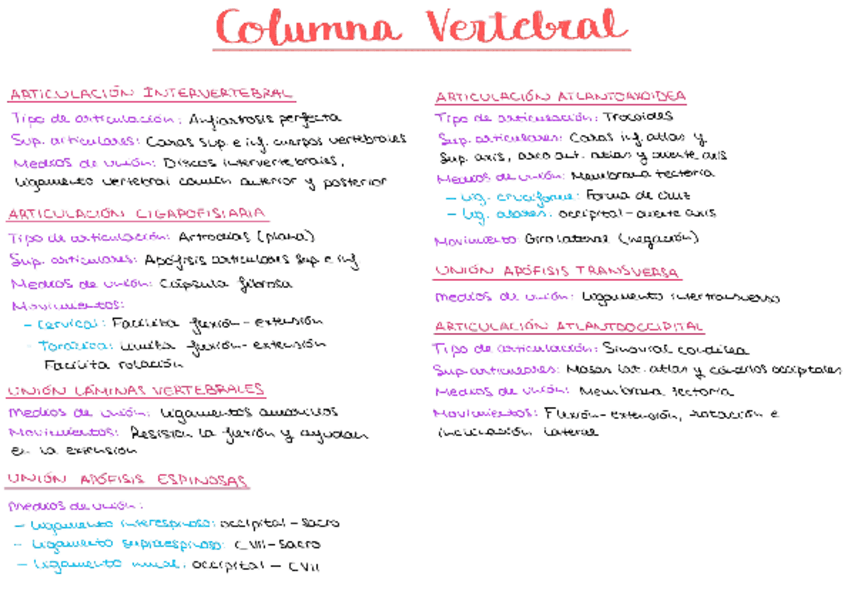 Columna Vertebral
ARTICULACIÓN INTERVERTEBRAL
Tipo de articulación: Anfiartrosis perfecta
Sup. articulares: Caras sup. e inf. cuerpos vertebrales
Medios de unión: Discos intervertebrales,
ligamento vertebral común anterior y posterior
ARTICULACIÓN CIGAPOFISIARIA
Tipo de articulación: Artrodias (plana)
Sup. articulares: Apófisis articulares sup. e inf
Medios de unión: Cápsula fibrosa
Movimientos:
- Cervical: Facilita flexión - extensión
- Torácica: Limita flexión - extensión
Facilita rotación
UNIÓN LÁMINAS VERTEBRALES
Medios de unión: Ligamentos amarillos
Movimientos: Resisten la flexión y ayudan
en la extensión
UNIÓN APÓFISIS ESPINOSAS
Medios de unión:
- Ligamento interespinoso: occipital - sacro
- Ligamento supraespinoso: CVII - Sacro
- Ligamento nucal: occipital - CVII
ARTICULACIÓN ATLANTOAXOIDEA
Tipo de articulación: Trocoides
Sup. articulares: Caras inf. atlas y
sup. axis, arco ant. atlas y diente axis
Medios de unión: Membrana tectoria
- Lig. cruciforme: Forma de cruz
- Lig. alares: occipital - diente axis
Movimiento Giro lateral (negación)
UNIÓN APÓFISIS TRANSVERSA
Medios de unión: Ligamento intertransverso
ARTICULACIÓN ATLANTOOCCIPITAL
Tipo de articulación: Sinovial condílea
Sup articulares: Masas lat. atlas y cóndilos occipitales
Medios de unión: Membrana tectoria
Movimientos: Flexión - extensión, rotación e
inclinación lateral